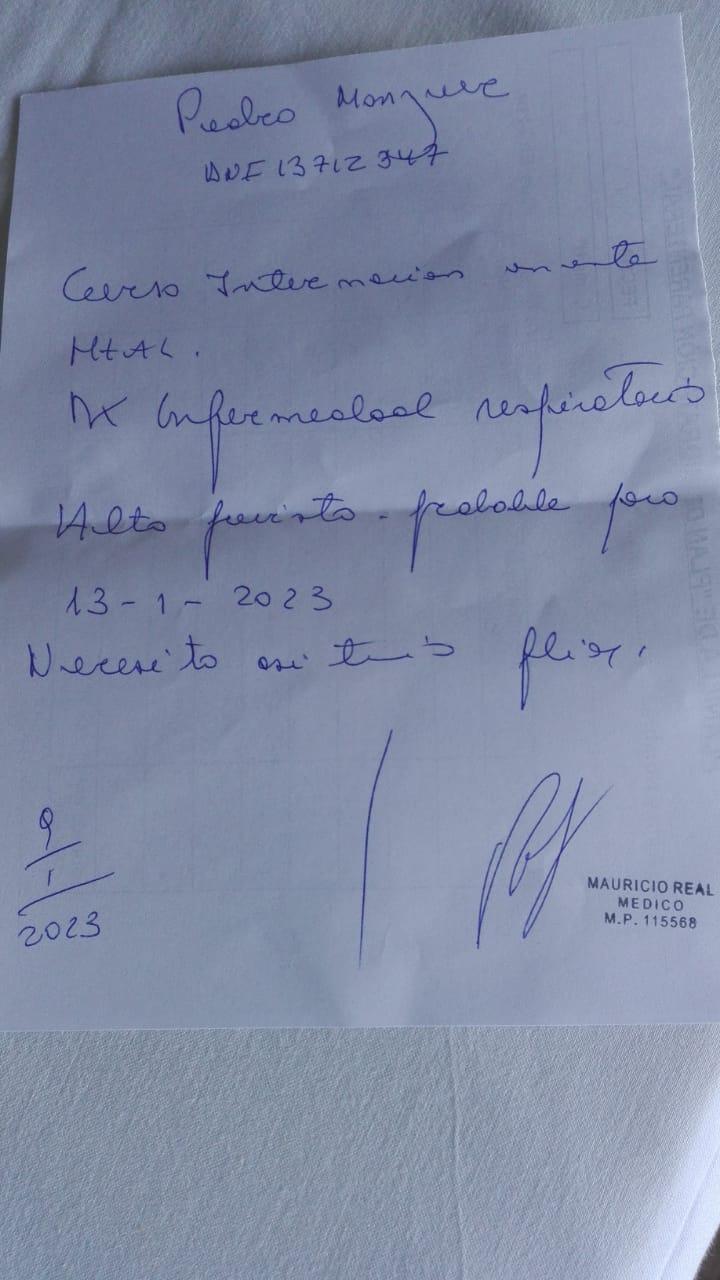 Pedro
DNI 13712347
Curso Internacion en este
HtAL.
DX Enfermedad respiratoria
Alta prevista - probable para
13-1-2023
Necesito asistencia fliar.
9/1/2023
MAURICIO REAL
MEDICO
M.P. 115568